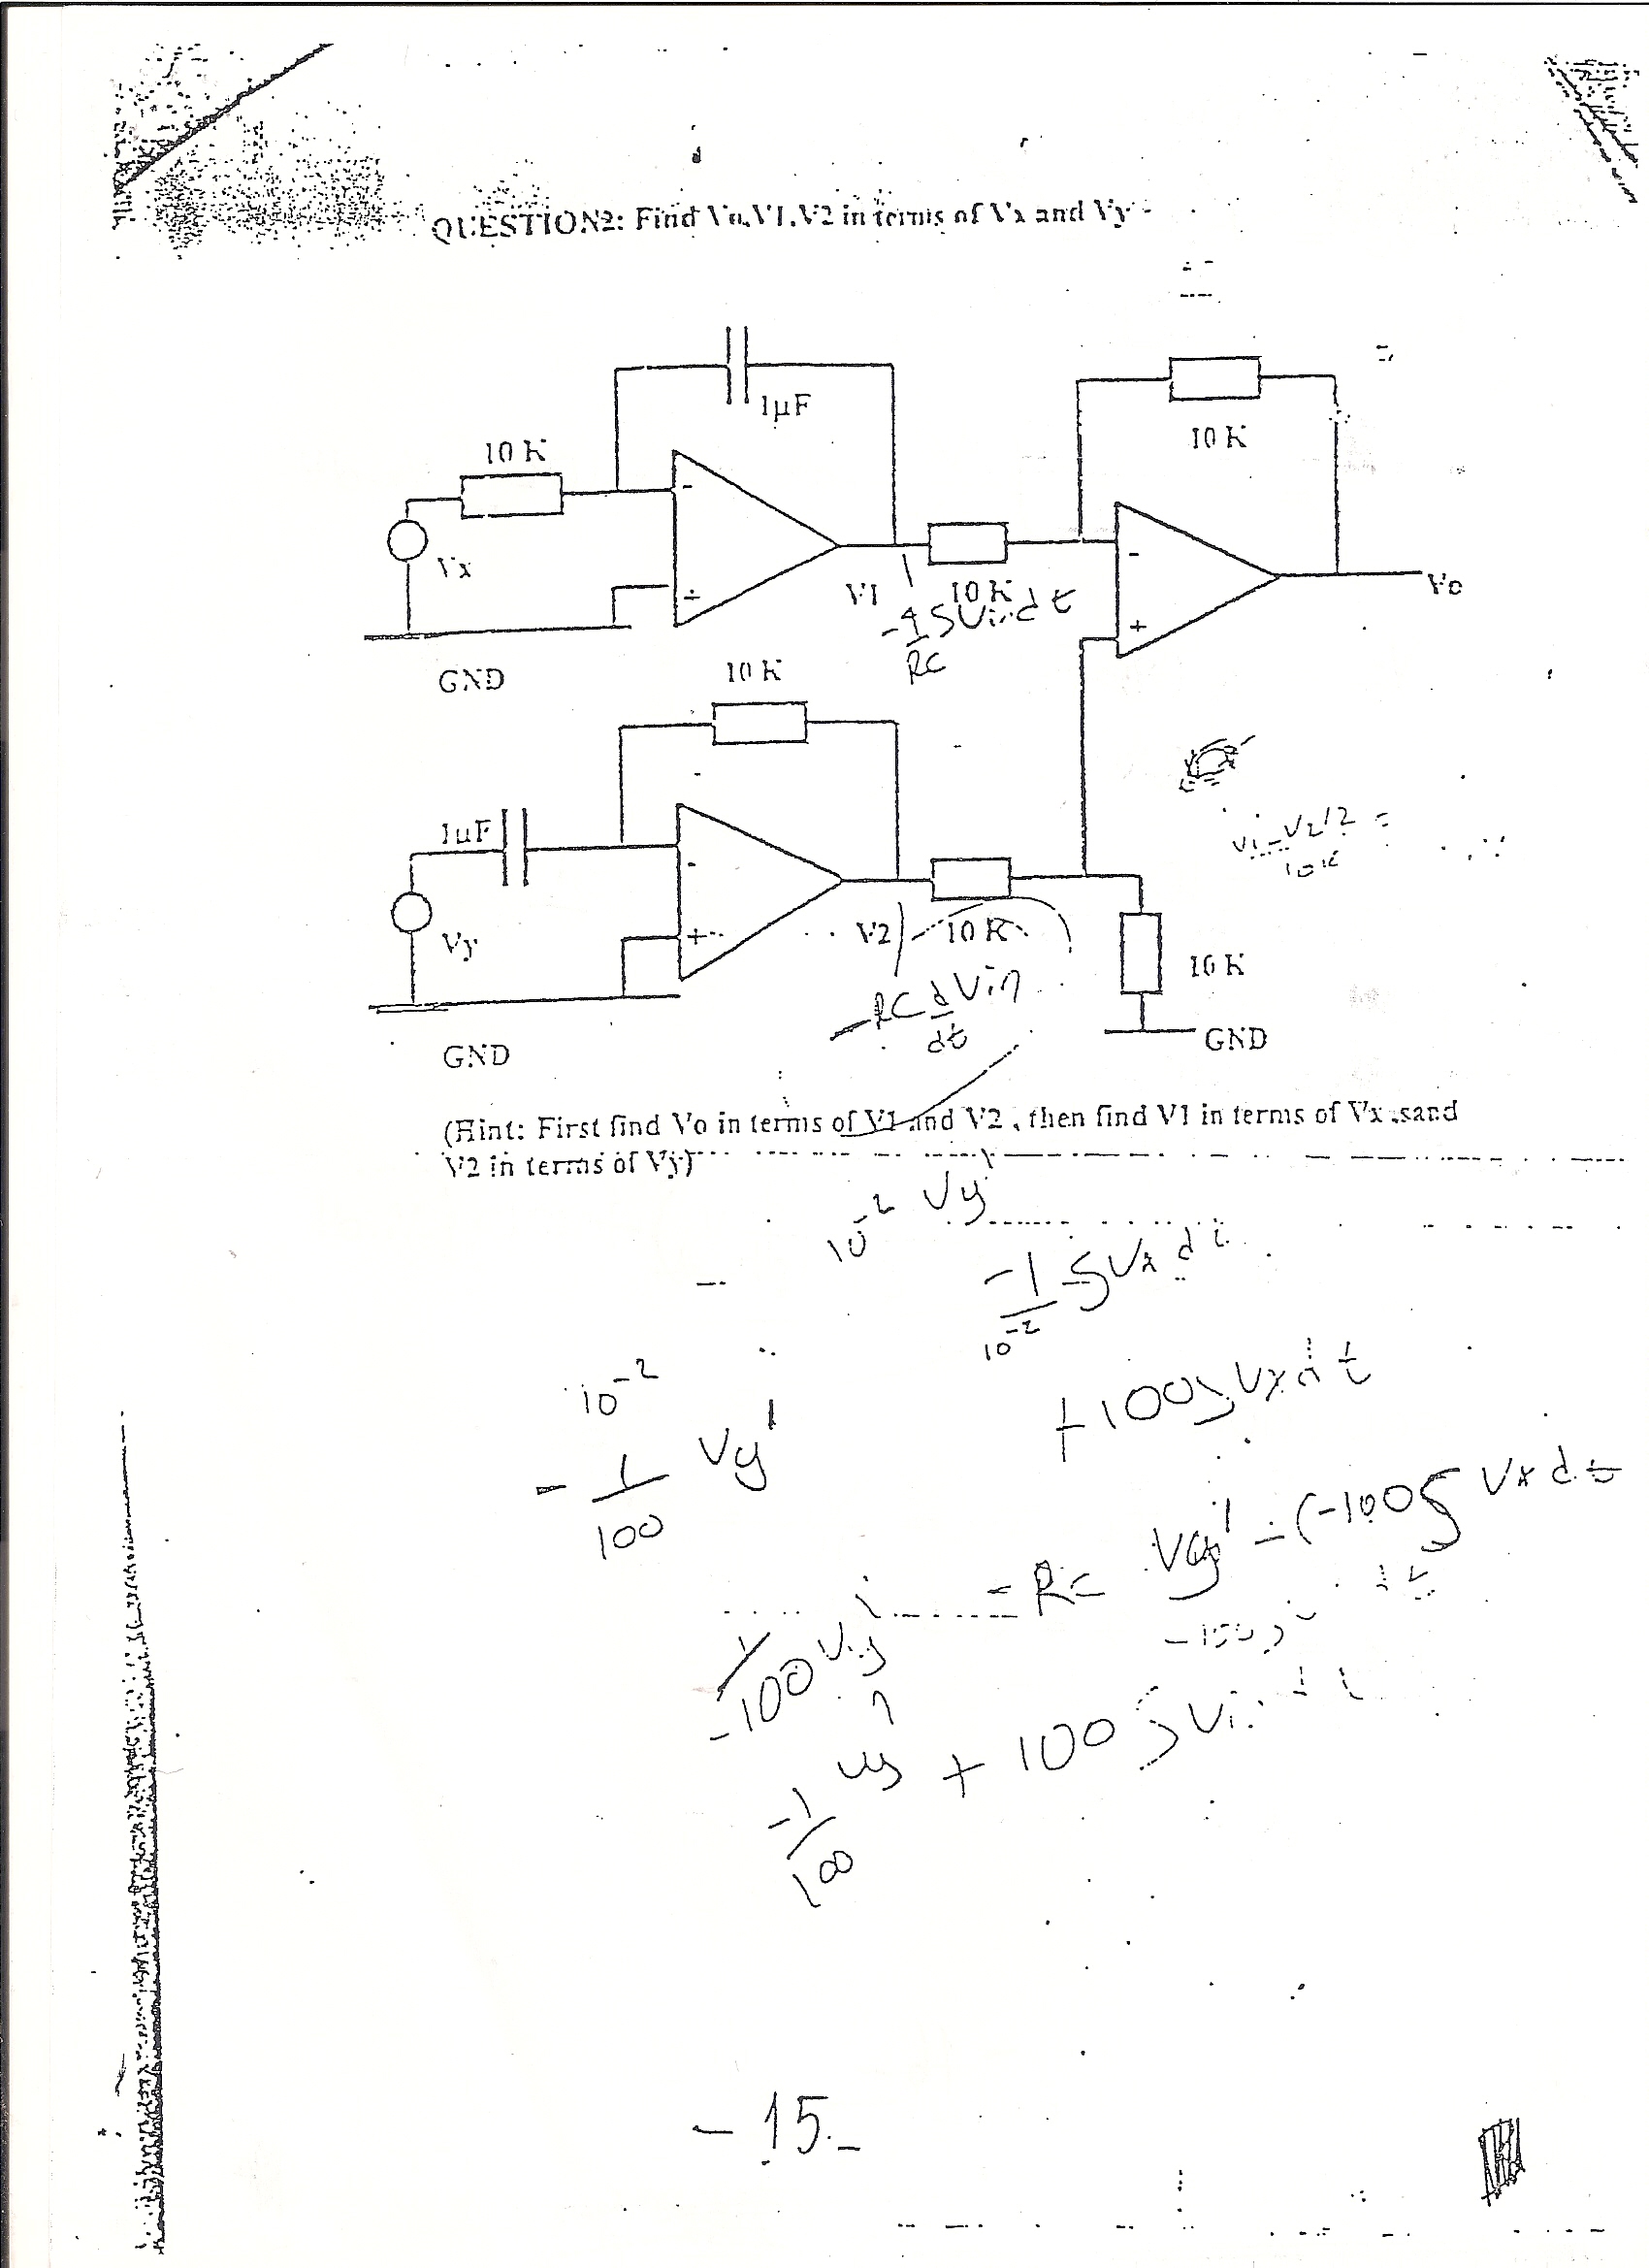 QUESTION2: Find Vo,V1,V2 in terms of Vx and Vy
1µF
10 K
10 K
-
-
Vx
V1
10 K
Vo
+
+
-1/RC ∫Vin dt
GND
10 K
1µF
-
V1 - V2/2 =
10K
Vy
+
V2
10 K
10 K
-RC d/dt Vin
GND
GND
(Hint: First find Vo in terms of V1 and V2 , then find V1 in terms of Vx ,sand
V2 in terms of Vy)
10^-2 Vy'
-1/10^-2 ∫Vx dt
10^-2
+100∫Vx dt
-1/100 Vy'
-RC Vy' - (-100∫Vx dt
-1/100 Vy'
-1/100 Vy' + 100∫Vin dt
- 15 -